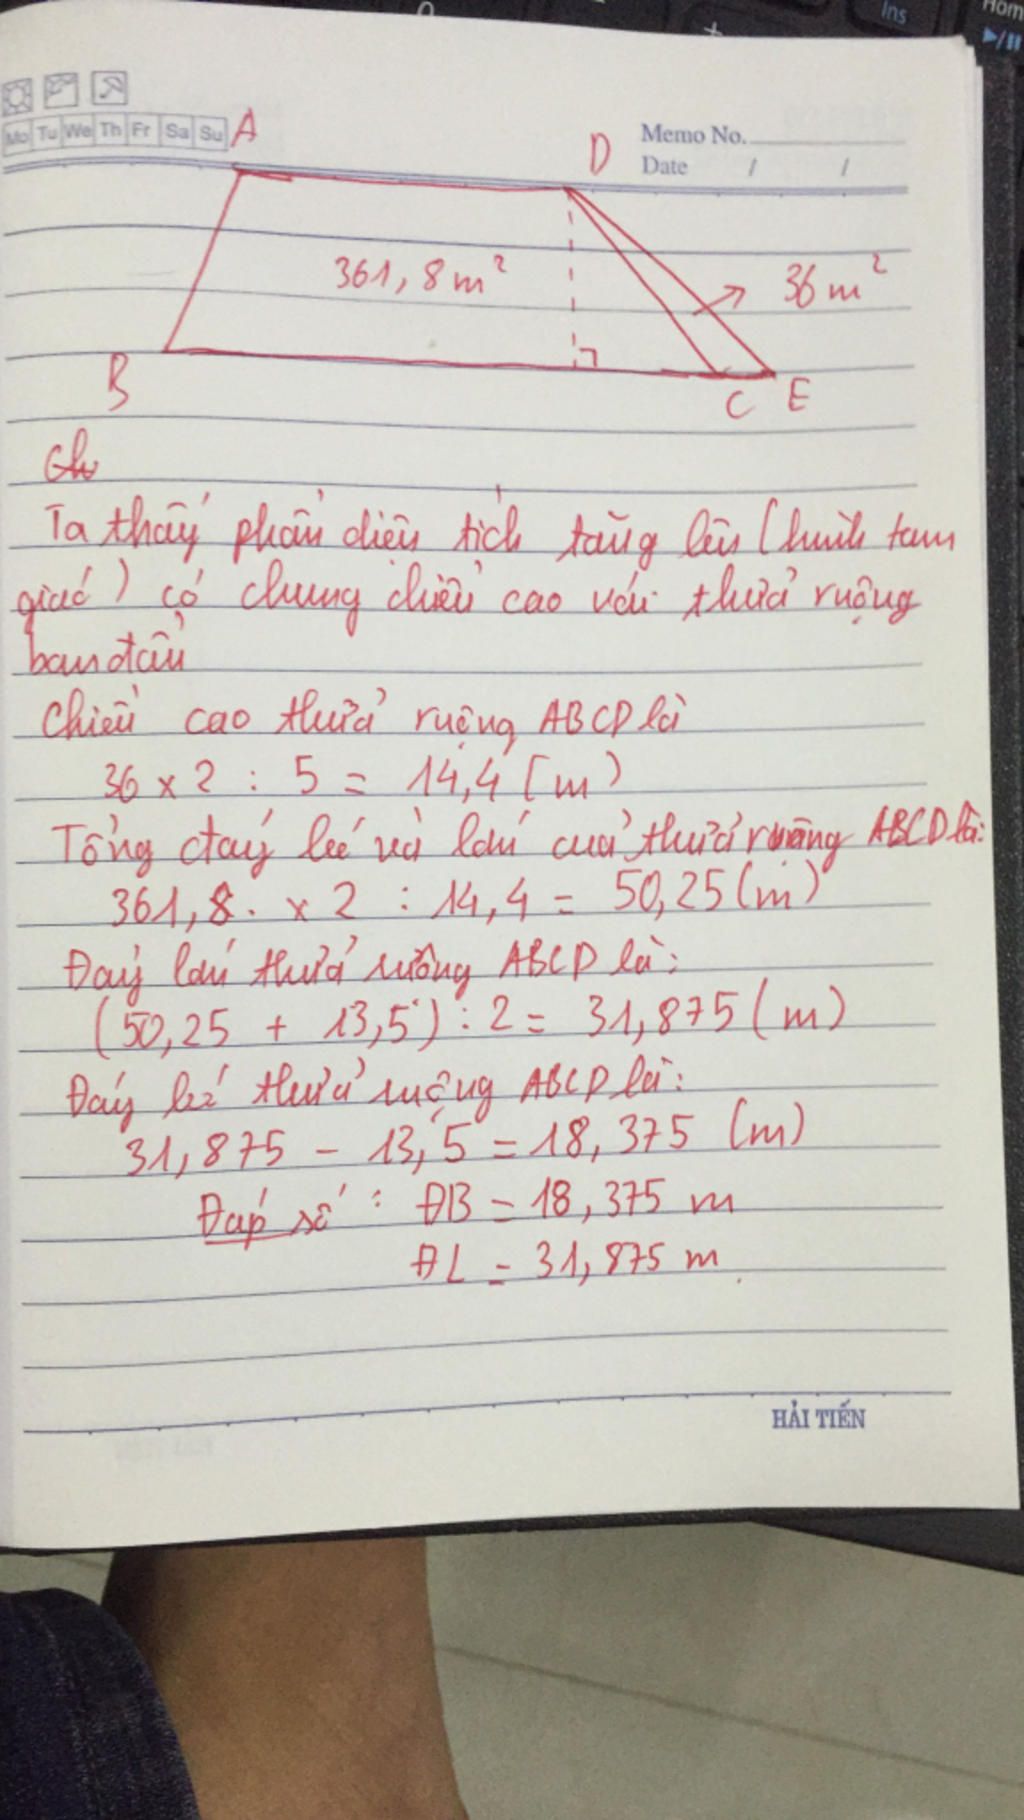 Ins
Hom
Mo Tu We Th Fr Sa Su
Memo No.
Date / /
A
D
361,8 m²
36 m²
B
C E
Ta thấy phần diện tích tăng lên (hình tam
giác) có chung chiều cao với thửa ruộng
ban đầu
Chiều cao thửa ruộng ABCD là
36 x 2 : 5 = 14,4 (m)
Tổng đáy bé và lớn của thửa ruộng ABCD là:
361,8 x 2 : 14,4 = 50,25 (m)
Đáy lớn thửa ruộng ABCD là:
(50,25 + 13,5) : 2 = 31,875 (m)
Đáy bé thửa ruộng ABCD là:
31,875 - 13,5 = 18,375 (m)
Đáp số : ĐB = 18,375 m
ĐL = 31,875 m
HẢI TIẾN